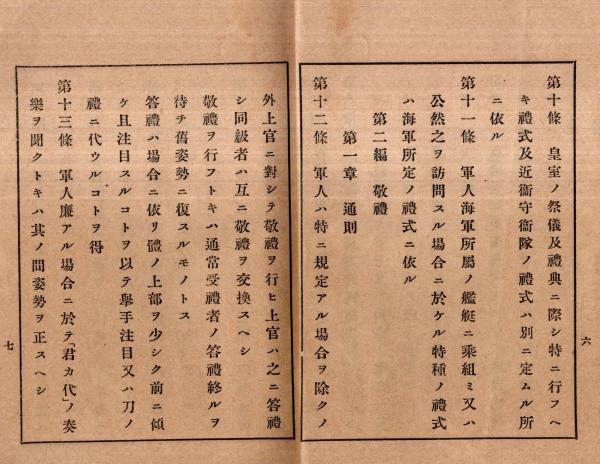 第十條　皇室ノ祭儀及禮典ニ際シ特ニ行フヘ
キ禮式及近衞守衞隊ノ禮式ハ別ニ定ムル所
ニ依ル
第十一條　軍人海軍所屬ノ艦艇ニ乘組ミ又ハ
公然之ヲ訪問スル場合ニ於ケル特種ノ禮式
ハ海軍所定ノ禮式ニ依ル
第二編　敬禮
第一章　通則
第十二條　軍人ハ特ニ規定アル場合ヲ除クノ
六
外上官ニ對シテ敬禮ヲ行ヒ上官ハ之ニ答禮
シ同級者ハ互ニ敬禮ヲ交換スヘシ
敬禮ヲ行フトキハ通常受禮者ノ答禮終ルヲ
待テ舊姿勢ニ復スルモノトス
答禮ハ場合ニ依リ體ノ上部ヲ少シク前ニ傾
ケ且注目スルコトヲ以テ擧手注目又ハ刀ノ
禮ニ代ウルコトヲ得
第十三條　軍人廉アル場合ニ於テ「君カ代」ノ奏
樂ヲ聞クトキハ其ノ間姿勢ヲ正スヘシ
七